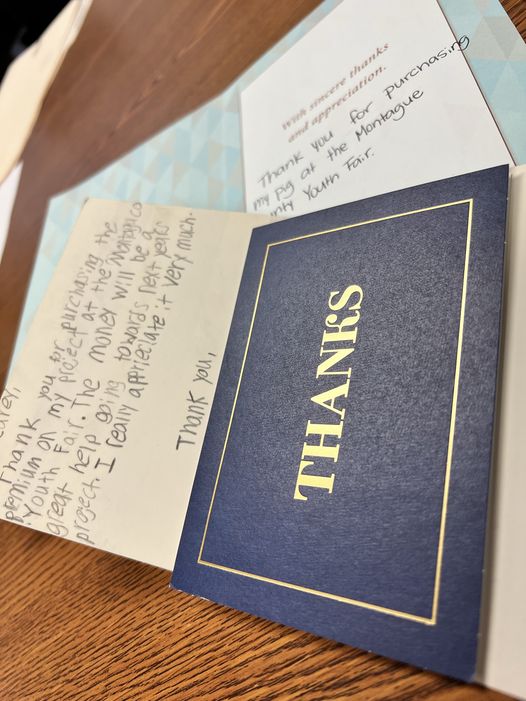 With sincere thanks
and appreciation.
Thank you for purchasing
my pig at the Montague
nty Youth Fair.
earey,
Thank you for purchasing the
premium on my project at the Montague Co
Youth Fair. The money will be a
great help going towards next years
project. I really appreciate it very much.
Thank you,
THANKS